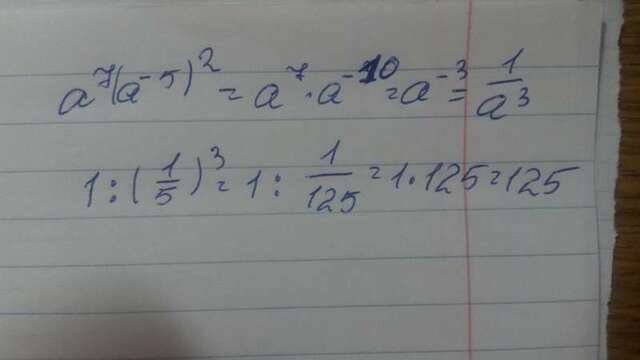 a⁷(a⁻⁵)² = a⁷ · a⁻¹⁰ = a⁻³ = 1/a³
1 : (1/5)³ = 1 : 1/125 = 1 · 125 = 125